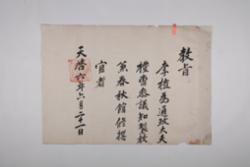 教旨
李植為通政大夫
禮曹參議知製敎
兼春秋館修撰
官者
天啓六年六月二十一日